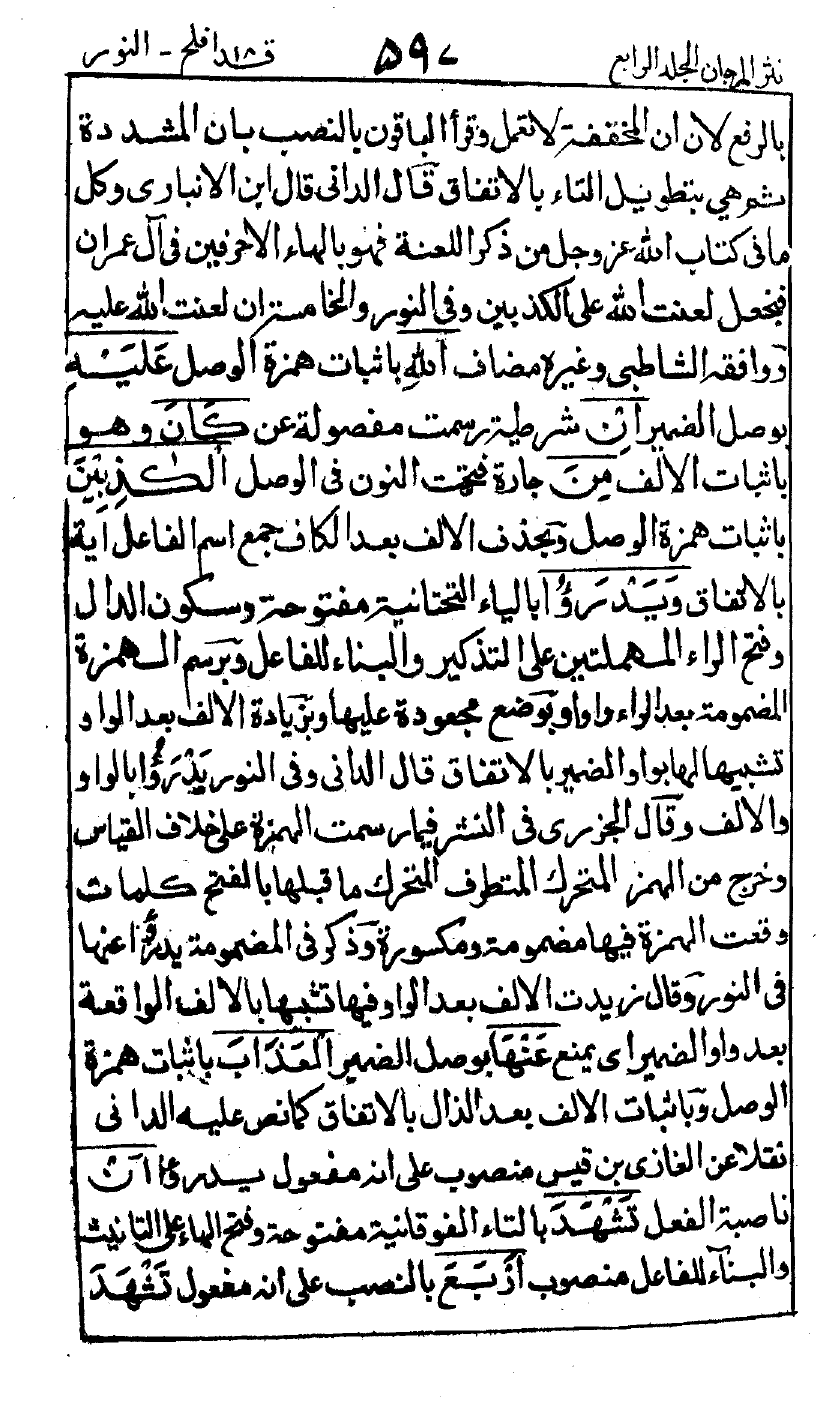 نثر المرجان المجلد الرابع ۵۹۷ قد افلح ۱۸ - النور
بالرفع لان ان المخففة لا تعمل وقرأ الباقون بالنصب بان المشددة
ثم هي بتطويل التاء بالاتفاق قال الداني قال ابن الانباري وكل
ما في كتاب الله عز وجل من ذكر اللعنة فهو بالهاء الا حرفين في آل عمران
فنجعل لعنت الله على الكذبين وفي النور والخامسة ان لعنت الله عليه
ووافقه الشاطبي وغيره مضاف اللهِ باثبات همزة الوصل عَلَيْهِ
بوصل الضمير اِنْ شرطية رسمت مفصولة عن كَانَ وهو
باثبات الالف مِنَ جارة فتحت النون في الوصل الْكٰذِبِيْنَ
باثبات همزة الوصل وبحذف الالف بعد الكاف جمع اسم الفاعل آية
بالاتفاق وَيَدْرَؤُا بالياء التحتانية مفتوحة وسكون الدال
وفتح الراء المهملتين على التذكير والبناء للفاعل وبرسم الهمزة
المضمومة بعد الراء واوا وبوضع مجعودة عليها وبزيادة الالف بعد الواو
تشبيها لها بواو الضمير بالاتفاق قال الداني وفي النور يَدْرَؤُا بالواو
والالف وقال الجزري في النشر فيما رسمت الهمزة على خلاف القياس
وخرج من الهمز المتحرك المتطرف المتحرك ما قبلها بالفتح كلمات
وقعت الهمزة فيها مضمومة ومكسورة وذكر في المضمومة يدرؤا عنها
في النور وقال زيدت الالف بعد الواو فيها تشبها بالالف الواقعة
بعد واو الضمير اى يمنع عَنْهَا بوصل الضمير الْعَذَابَ باثبات همزة
الوصل وباثبات الالف بعد الذال بالاتفاق كما نص عليه الداني
نقلا عن الغازي بن قيس منصوب على انه مفعول يدرؤا اَنْ
ناصبة الفعل تَشْهَدَ بالتاء الفوقانية مفتوحة وفتح الهاء على التانيث
والبناء للفاعل منصوب اَرْبَعَ بالنصب على انه مفعول تَشْهَدَ